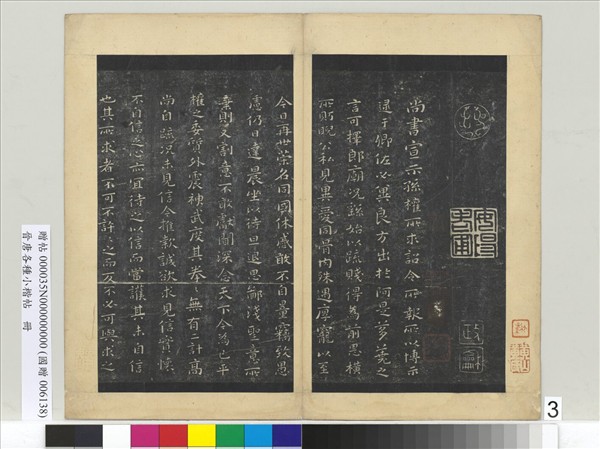 尚書宣示孫權所求詔令所報所以博示
逮于卿佐必冀良方出於阿是芻蕘之
言可擇郎廟況繇始以疏賤得為前恩橫
所盱睨公私見異愛同骨肉殊遇厚寵以至
今日再世榮名同國休慼敢不自量竊致愚
慮仍日達晨坐以待旦退思鄙淺聖意所
棄則又割意不敢獻聞深念天下今為已平
權之委質外震神武度其拳拳無有二計高
尚自疏況未見信今推款誠欲求見信實懷
不自信之心亦宜待之以信而當護其未自信
也其所求者不可不許許之而反不必可與求之
贈帖 000035N000000000 (國贈 006138)
晉唐各種小楷帖 冊
3